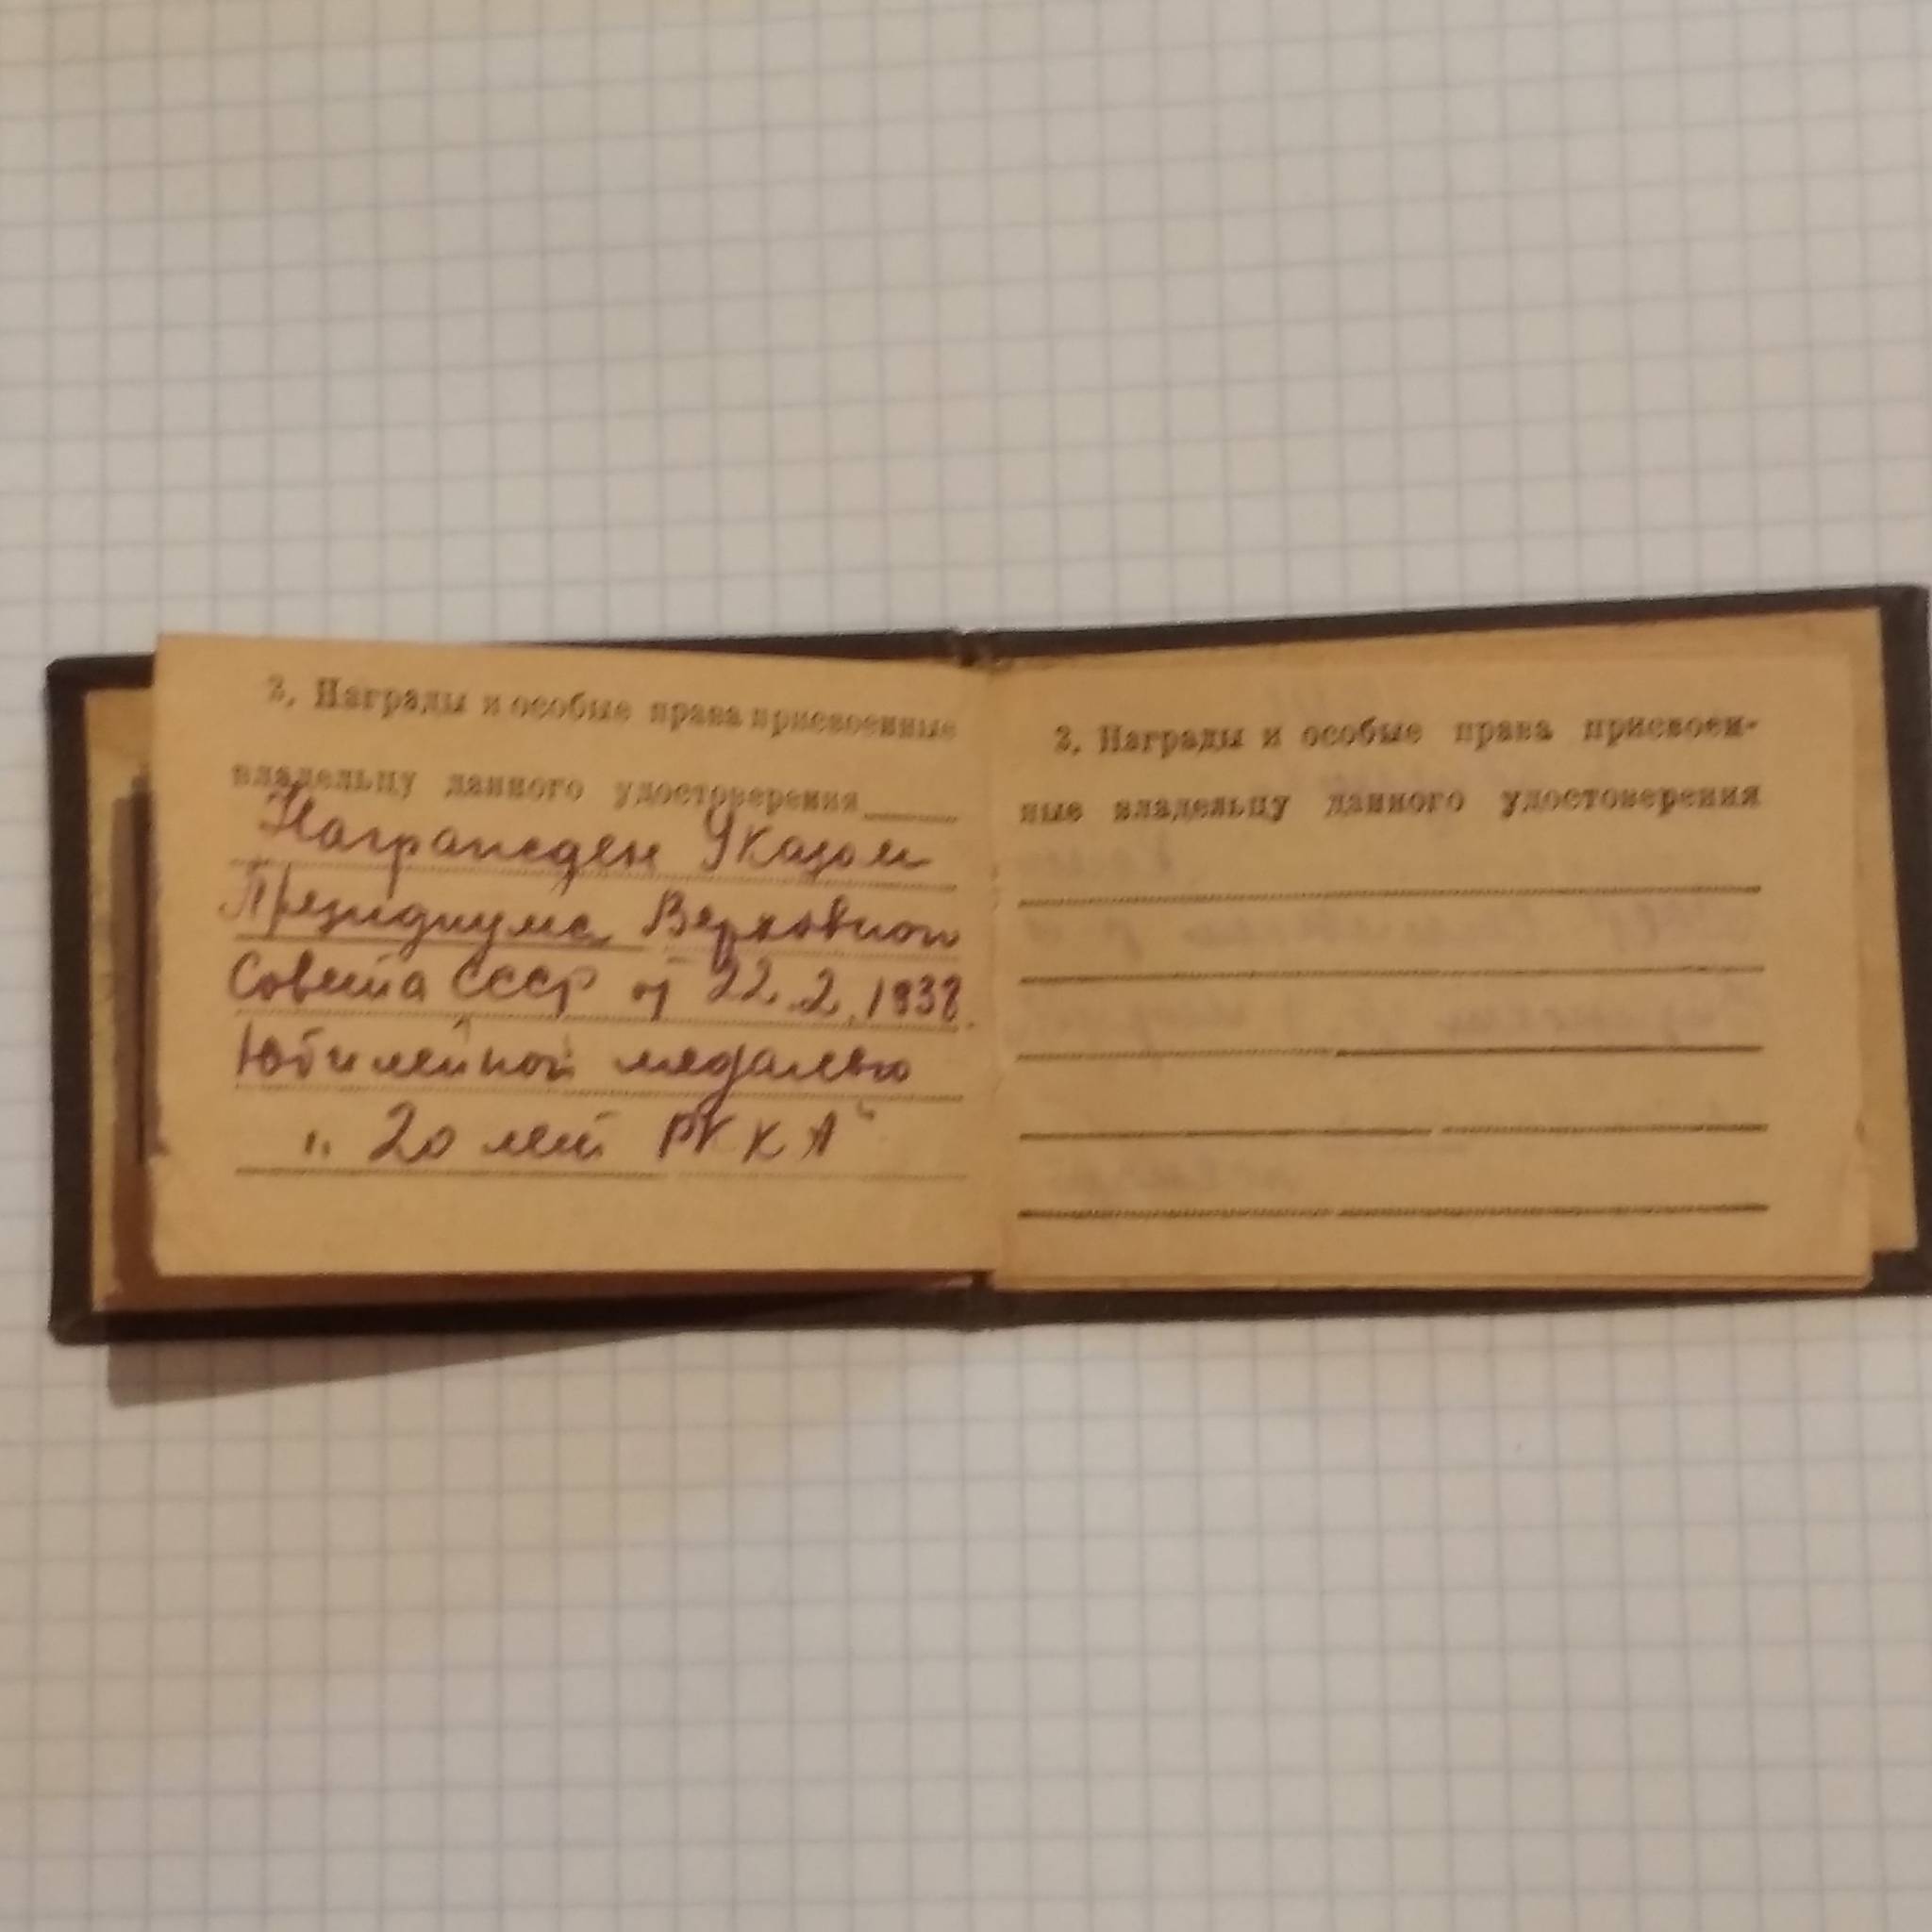 2. Награды и особые права присвоенные
владельцу данного удостоверения
Награжден Указом
Президиума Верховного
Совета СССР от 22.2.1938
Юбилейной медалью
„20 лет РККА“
2. Награды и особые права присвоен-
ные владельцу данного удостоверения